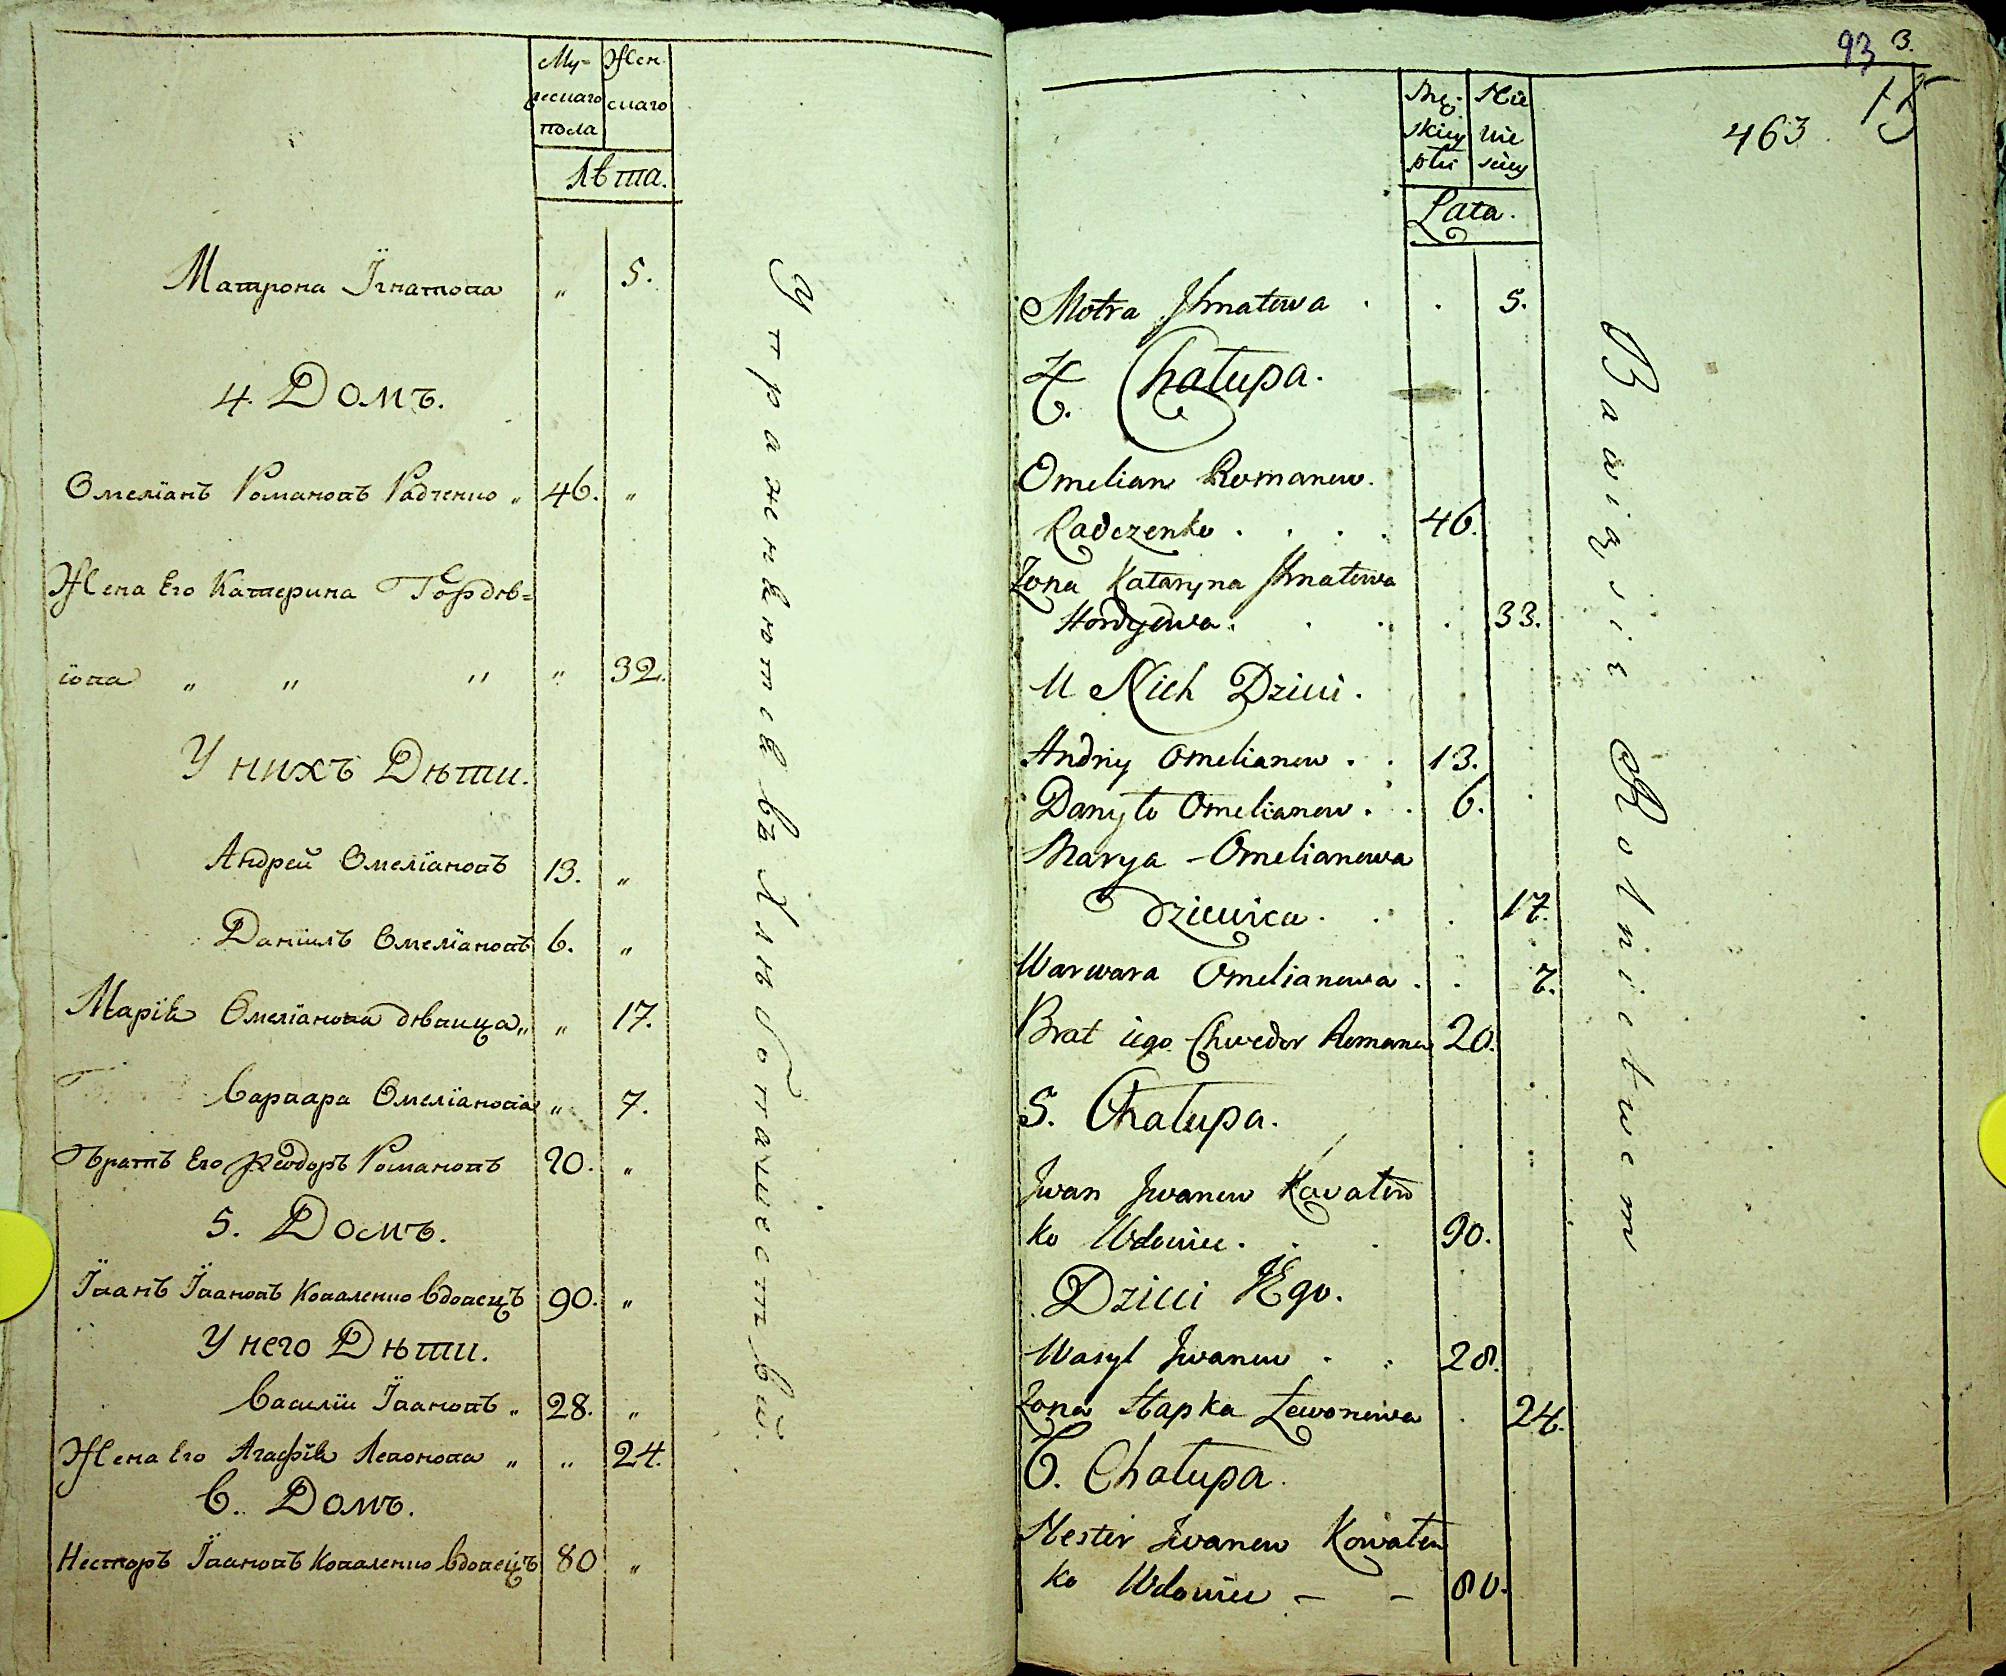 Му-
жескаго
пола
Жен
скаго
Лѣта.
Матрона Їгнатова " 5.
4. Домъ.
Омелїанъ Романовъ Радченко " 46. "
Жена Его Катерина Гордѣ=
ïова " " " " 32.
У нихъ Дѣти.
Андрей Омелїановъ 13. "
Данїилъ Омелїановъ 6. "
Марїѣ Омелїанова дѣвица " " 17.
Варвара Омелїанова " 7.
Братъ Его Феодоръ Романовъ 20. "
5. Домъ.
Їванъ Ївановъ Коваленко Вдовецъ 90. "
У него Дѣти.
Василїи Ївановъ " 28. "
Жена Его Агафїѣ Левонова " " 24.
6. Домъ.
Несторъ Ївановъ Коваленко Вдовецъ 80 "
Упражнѣютсѣ въ Хлѣбопашествѣ.
93 3.
15
463.
Mę-
skiey
płci
Że
nie
skiey
Lata.
Motra Ihnatowa . . 5.
4. Chałupa.
Omelian Romanow.
Radczenko . . . . 46.
Żona Kataryna Ihnatowa
Hordyewa . . . . 33.
U Nich Dzieci.
Andriy Omelianow . . 13.
Danyło Omelianow . . 6.
Marya Omelianowa
Dziewica . . . 17.
Warwara Omelianowa . . 7.
Brat iego Chwedor Romanow 20.
5. Chałupa.
Jwan Jwanow Kowalen
ko Wdowiec . . . 90.
Dzieci JEgo.
Wasyl Jwanow . . 28.
Żona Hapka Lewonowa . 24.
6. Chałupa.
Nester Jwanow Kowalen
ko Wdowiec – – 80.
Bawią się Rolnictwem